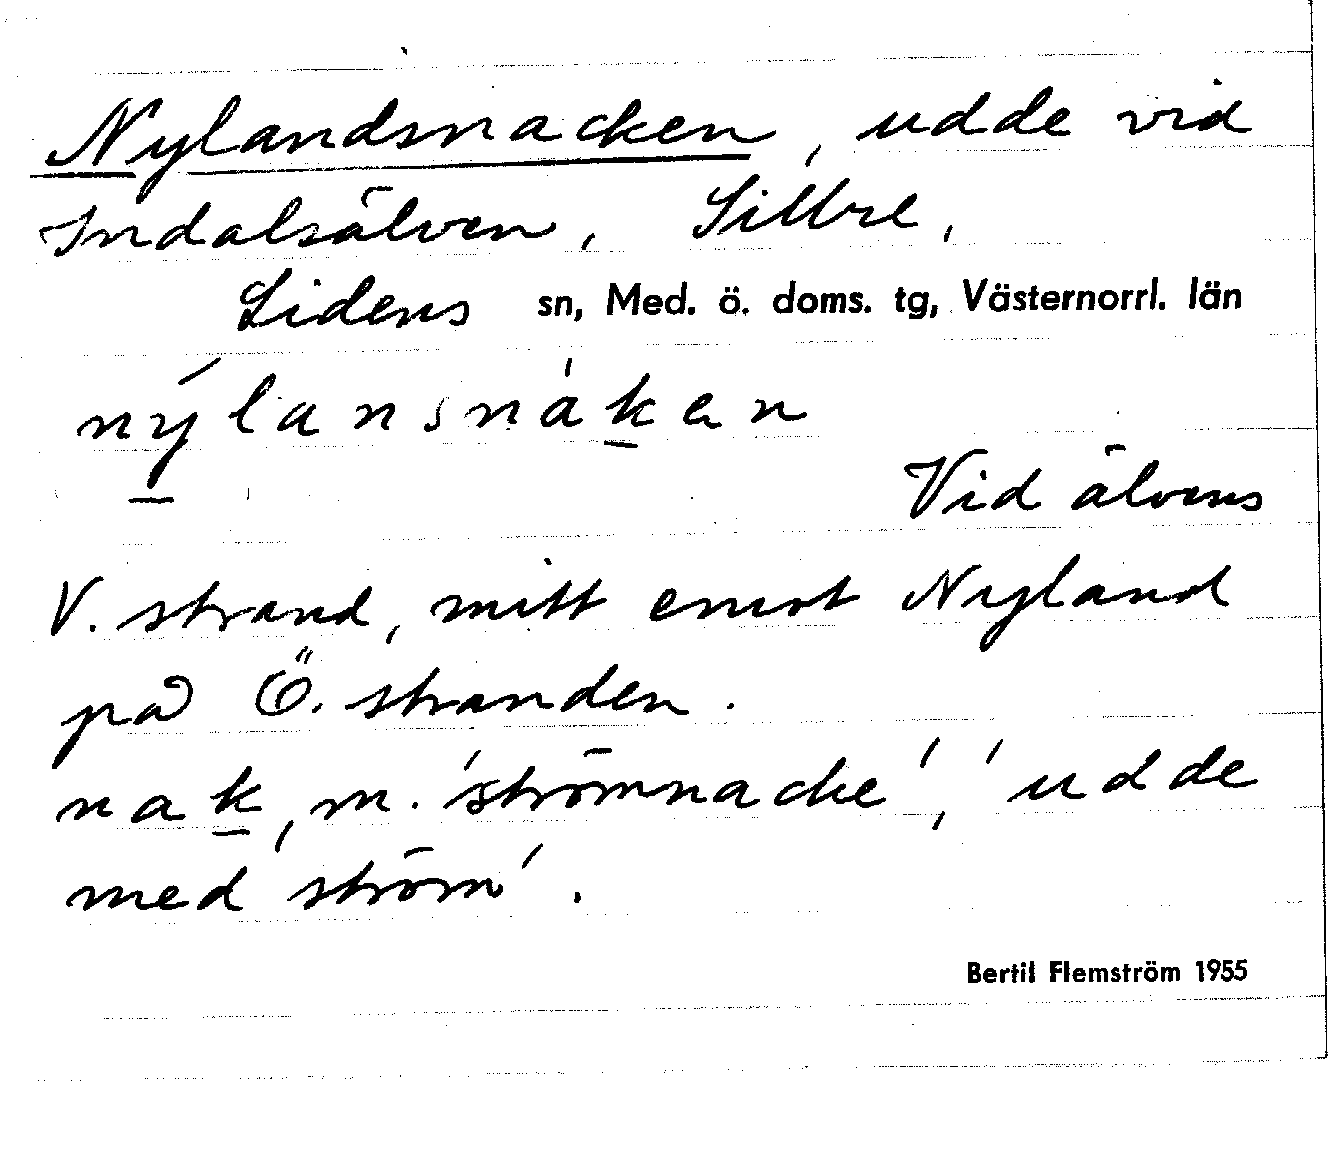 Nylandsnacken, udde vid
Indalsälven, Sillre,
Lidens sn, Med. ö. doms. tg, Västernorrl. län
nýlansnàken
Vid älvens
V. strand, mitt emot Nyland
på Ö. stranden.
nak, m. 'strömnacke', 'udde
med ström'.
Bertil Flemström 1955